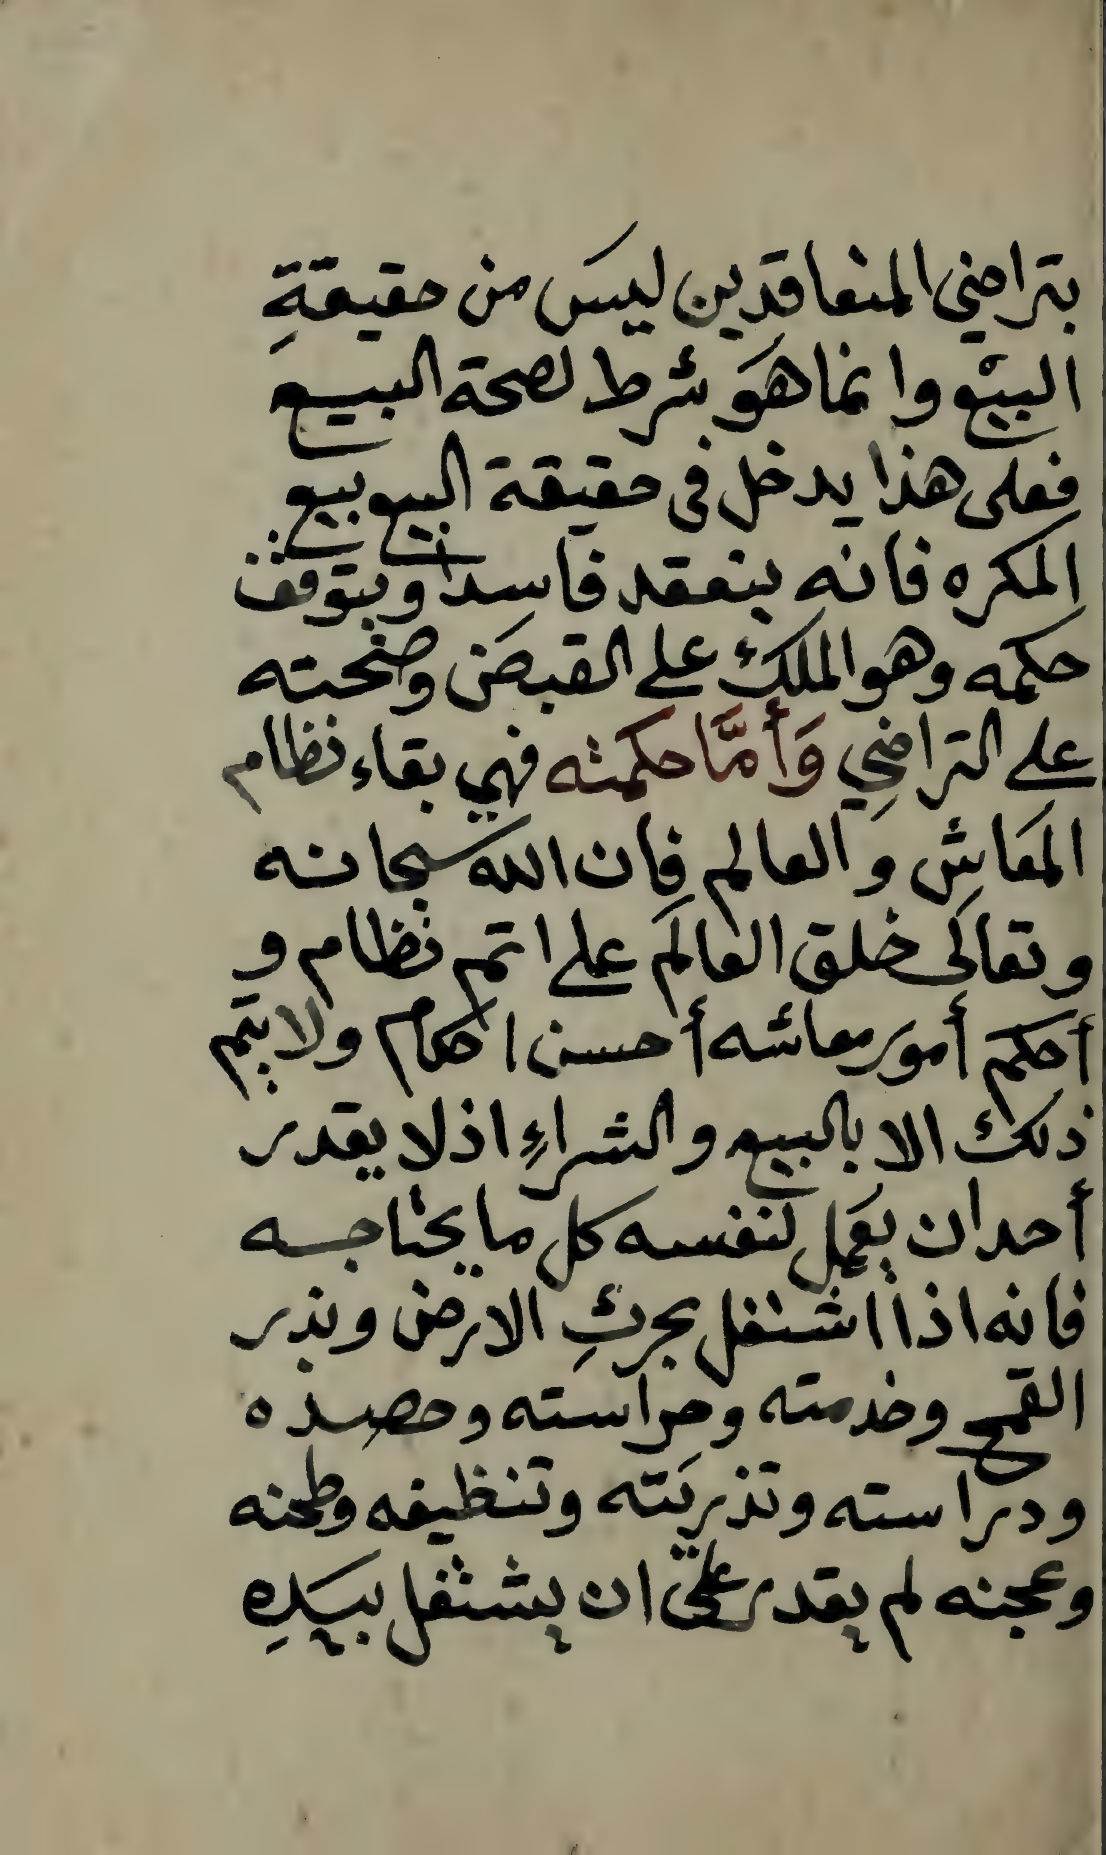 بتراضي المتعاقدين ليسَ من حقيقةِ
البيْع وانما هوَ شرط لصحة البيع
فعلى هذا يدخل فى حقيقة البيع بيع
المكره فانه ينعقد فاسداً ويتوقف
حكمه وهو الملك على القبض وصحته
على التراضِي وَأمَّا حكمته فهي بقاء نظام
المَعاشِ والعالم فان الله سبحانه
وتعالى خلق العالَم على اتم نظام و
أحكم أمور معاشه أحسن احكام ولا يتم
ذلك الا بالبيع والشراءِ اذ لا يقدر
أحد ان يعمل لنفسه كل ما يحتاجه
فانه اذا اشتغل بحرثِ الارض وبذر
القمح وخدمته وحراسته وحصده
ودراسته وتذريَته وتنظيفه وطحنه
وعجنه لم يقدر على ان يشتغل بيَدِه